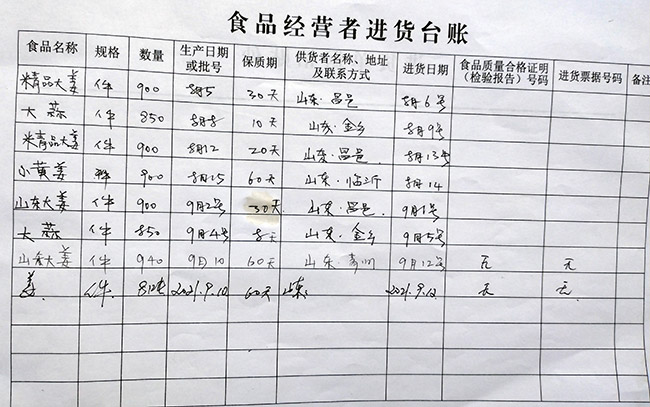 食品经营者进货台账
食品名称 规格 数量 生产日期或批号 保质期 供货者名称、地址及联系方式 进货日期 食品质量合格证明(检验报告)号码 进货票据号码 备注
精品大姜 件 900 8月5 30天 山东·昌邑 8月6号
大蒜 件 850 8月8 10天 山东·金乡 8月9号
精品大姜 件 900 8月12 20天 山东·昌邑 8月13号
小黄姜 件 900 8月25 60天 山东·临沂 8月14
山东大姜 件 900 9月2号 30天 山东·昌邑 9月1号
大蒜 件 850 9月4号 8天 山东·金乡 9月5号
山东大姜 件 940 9月10 60天 山东·青州 9月12号 无 无
姜 件 2021.9.10 60天 山东 2021.9.12 无 无